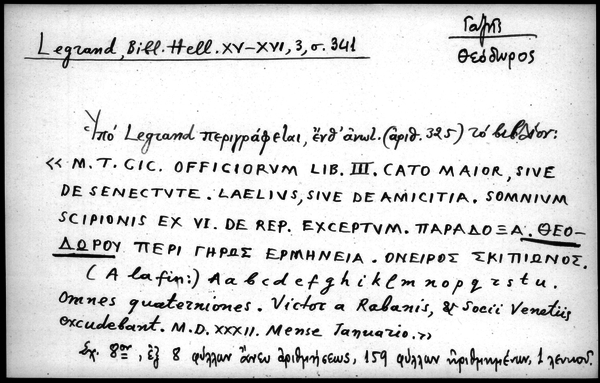 Legrand, Bibl. Hell. XV-XVI, 3, σ. 341
Γαζῆς
Θεόδωρος
Ὑπό Legrand περιγράφεται, ἔνθ' ἀνωτ. (ἀριθ. 325) τό βιβλίον:
« M. T. CIC. OFFICIORVM LIB. III. CATO MAIOR, SIVE
DE SENECTVTE. LAELIVS, SIVE DE AMICITIA. SOMNIVM
SCIPIONIS EX VI. DE REP. EXCEPTVM. ΠΑΡΑΔΟΞΑ. ΘΕΟ-
ΔΩΡΟΥ ΠΕΡΙ ΓΗΡΩΣ ΕΡΜΗΝΕΙΑ. ΟΝΕΙΡΟΣ ΣΚΙΠΙΩΝΟΣ.
(A la fin:) A a b c d e f g h i k l m n o p q r s t u.
Omnes quaterniones. Victor a Rabanis, & Socii Venetiis
excudebant. M.D.XXXII. Mense Ianuario. »
Σχ. 8ον, ἐξ 8 φύλλων ἄνευ ἀριθμήσεως, 159 φύλλων ἠριθμημένων, 1 λευκοῦ.